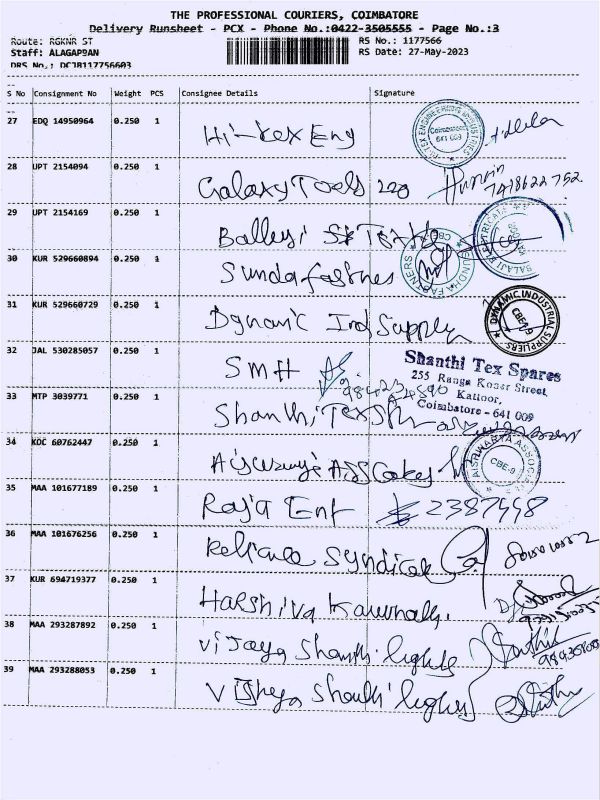 THE PROFESSIONAL COURIERS, COIMBATORE
Delivery Runsheet - PCX - Phone No.:0422-3505555 - Page No.:3
Route: RGKNR ST RS No.: 1177566
Staff: ALAGAPPAN RS Date: 27-May-2023
DRS No.: DCJB117756603
S No Consignment No Weight PCS Consignee Details Signature
27 EDQ 14950964 0.250 1
Hi-tex Eng
HI-TEX ENGINEERING INDUSTRIES Coimbatore 641 009
28 UPT 2154094 0.250 1
Galaxy Tools
29 UPT 2154169 0.250 1
BALAJI ELECTRICALS
30 KUR 529660894 0.250 1
Sunda fastnes
31 KUR 529660729 0.250 1
Dynamic Ind Supply
DYNAMIC INDUSTRIAL SUPPLIERS CBE-9
32 JAL 530285057 0.250 1
SMH
Shanthi Tex Spares
255 Ranga Konar Street,
Kattoor,
Coimbatore - 641 009
33 MTP 3039771 0.250 1
Shanthi Tex
34 KOC 60762447 0.250 1
AISHWARYA ASSOCIATES CBE-9
35 MAA 101677189 0.250 1
Raja Ent
36 MAA 101676256 0.250 1
Reliance Syndicate
37 KUR 694719377 0.250 1
Harshiva
38 MAA 293287892 0.250 1
Vijaya Shanthi lights
39 MAA 293288053 0.250 1
Shanthi lights